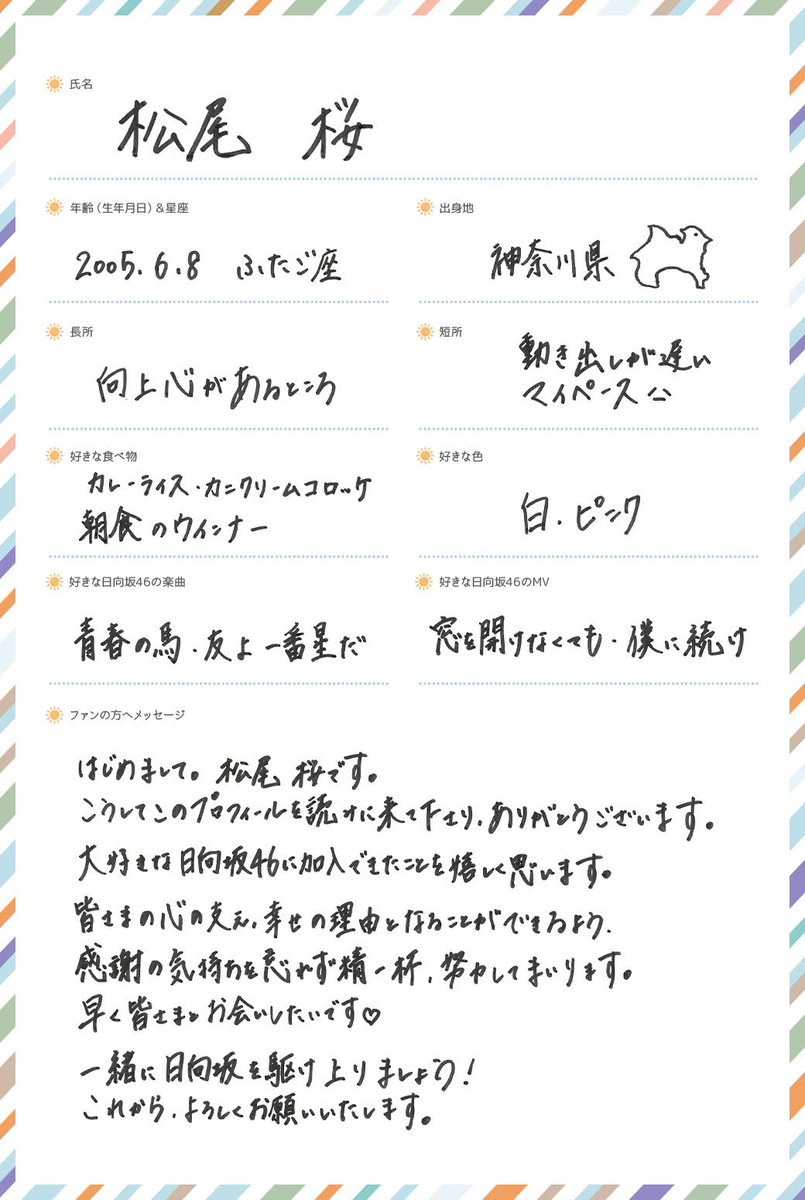 氏名
松尾 桜
年齢（生年月日）＆星座
2005.6.8 ふたご座
出身地
神奈川県
長所
向上心があるところ
短所
動き出しが遅い
マイペース
好きな食べ物
カレーライス・カニクリームコロッケ
朝食のウインナー
好きな色
白・ピンク
好きな日向坂46の楽曲
青春の馬・友よ 一番星だ
好きな日向坂46のMV
窓を開けなくても・僕に続け
ファンの方へメッセージ
はじめまして。松尾 桜です。
こうしてこのプロフィールを読みに来て下さり、ありがとうございます。
大好きな日向坂46に加入できたことを嬉しく思います。
皆さまの心の支え、幸せの理由となることができるよう、
感謝の気持ちを忘れず精一杯、努力してまいります。
早く皆さまとお会いしたいです♡
一緒に日向坂を駆け上りましょう！
これから、よろしくお願いいたします。